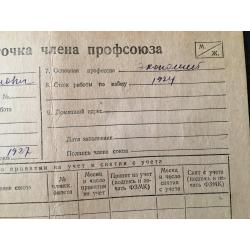 точка члена профсоюза
М.
Ж.
7. Основная профессия экономист
8. Стаж работы по найму 1924
9. Домашний адрес
Дата заполнения
1927 Подпись члена союза
о принятии на учет и снятии с учета
№
членск.
билета
Месяц
и число
принятия
на учет
Принят на учет
(подпись и печать ФЗМК)
Месяц
и число
снятия
с учета
Снят с учета
(подпись и печать ФЗМК)